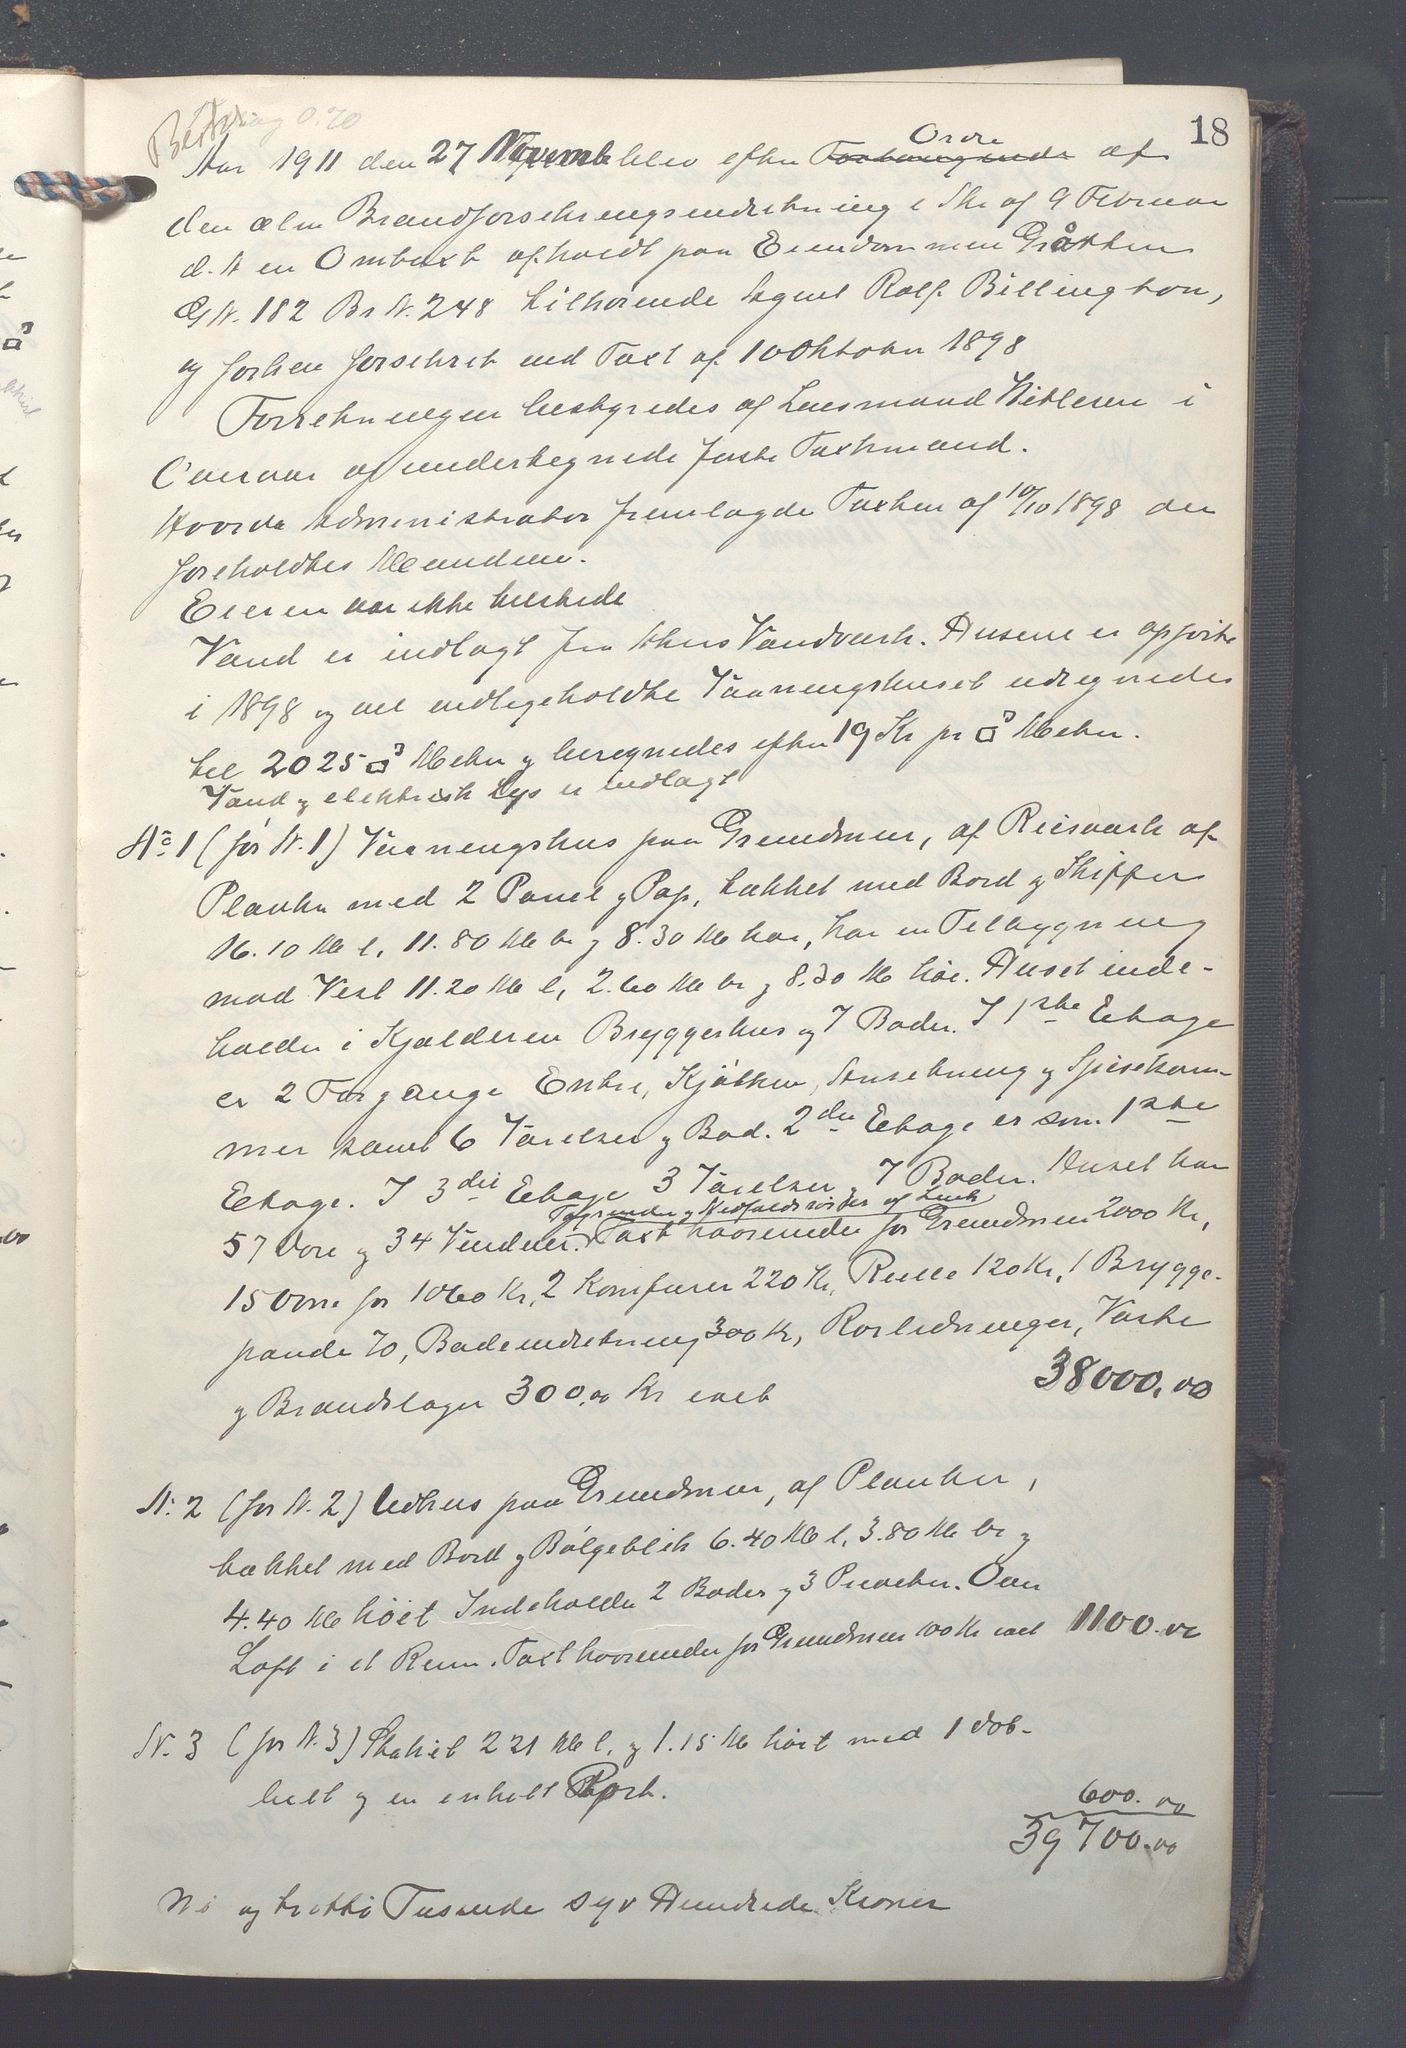 Bidrag 0.70
18
Aar 1911 den 27 Novemb blev efter Forlangende Ordre af
den alm Brandforsikringsindretning i Skr af 9 Februar
d. A en Omtaxt afholdt paa Eiendommen Gråtten
G N. 182 Br N. 248 tilhørende Agent Rolf Billington,
og forhen forsikret ved Taxt af 10 Oktober 1898
Forretningen bestyredes af Lensmand Hetleren i
og undertegnede faste Taxtmænd.
Administrator fremlagde Taxten af 10/10 1898 der
foreholdtes Mændene.
Eieren var ikke tilstede
Vand er indlagt fra Vandværk. Husene er opførte
i 1898 og vel vedligeholdte Vaaningshuset udregnedes
til 2025 □3 Meter og beregnedes efter 19 Kr pr □3 Meter.
Vand og elektrisk Lys er indlagt
No 1 (før N. 1) Vaaningshus paa Grundmur, af Reisværk af
Planker med 2 Panel og Pap, tækket med Bord og Skiffer
16.10 M l, 11.80 M br og 8.30 M høi, har en Tilbygning
mod Vest 11.20 M l, 2.60 M br og 8.30 M høi. Huset inde-
holder i Kjælderen Bryggerhus og 7 Boder. I 1ste Etage
er 2 Forgange Entre, Kjøkken, Anretning og Spisekam-
mer samt 6 Værelser og Bad. 2den Etage er som 1ste
Etage. I 3die Etage 3 Værelser og 7 Boder. Huset har
Tagrender og Nedfaldsrør af Zink
57 Døre og 34 Vinduer. Taxt hvorunder for Grundmur 2000 Kr,
15 Ovne for 1060 Kr, 2 Komfurer 220 Kr, Rulle 120 Kr, 1 Brygge-
pande 70, Badeindretning 300 Kr, Rørledninger, Vaske
og Brandslager 300,00 Kr ialt 38000,00
N. 2 (før N. 2) Udhus paa Grundmur, af Planker,
tækket med Bord og Bølgeblik 6.40 M l, 3.80 M br og
4.40 M høit Indeholder 2 Boder og 3 Priveter. Oven
Loft i et Rum. Taxt hvorunder for Grundmur 100 Kr ialt 1100.00
N. 3 (før N. 3) Stakit 221 M l, og 1.15 M høit med 1 dob-
belt og en enkelt Port. 600.00
39 700.00
Ni og tretti Tusinde syv Hundrede Kroner